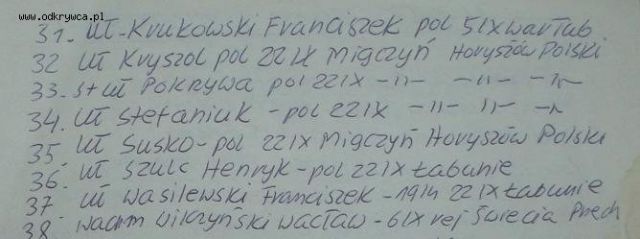 www.odkrywca.pl
31. uł-Krukowski Franciszek pol 5 IX Warlub
32 uł Kryszol pol 22 IX Migczyń Horyszów Polski
33. st uł Pokrywa pol 22 IX -11- -11- -11-
34. uł Stefaniuk - pol 22 IX -11- -11- -11-
35 uł Susko - pol 22 IX Migczyń Horyszów Polski
36. uł Szulc Henryk - pol 22 IX Łabunie
37 uł Wasilewski Franciszek - 1914 22 IX Łabunie
38. wachm Wikzyński Wacław - 6 IX rej Świecia Przech